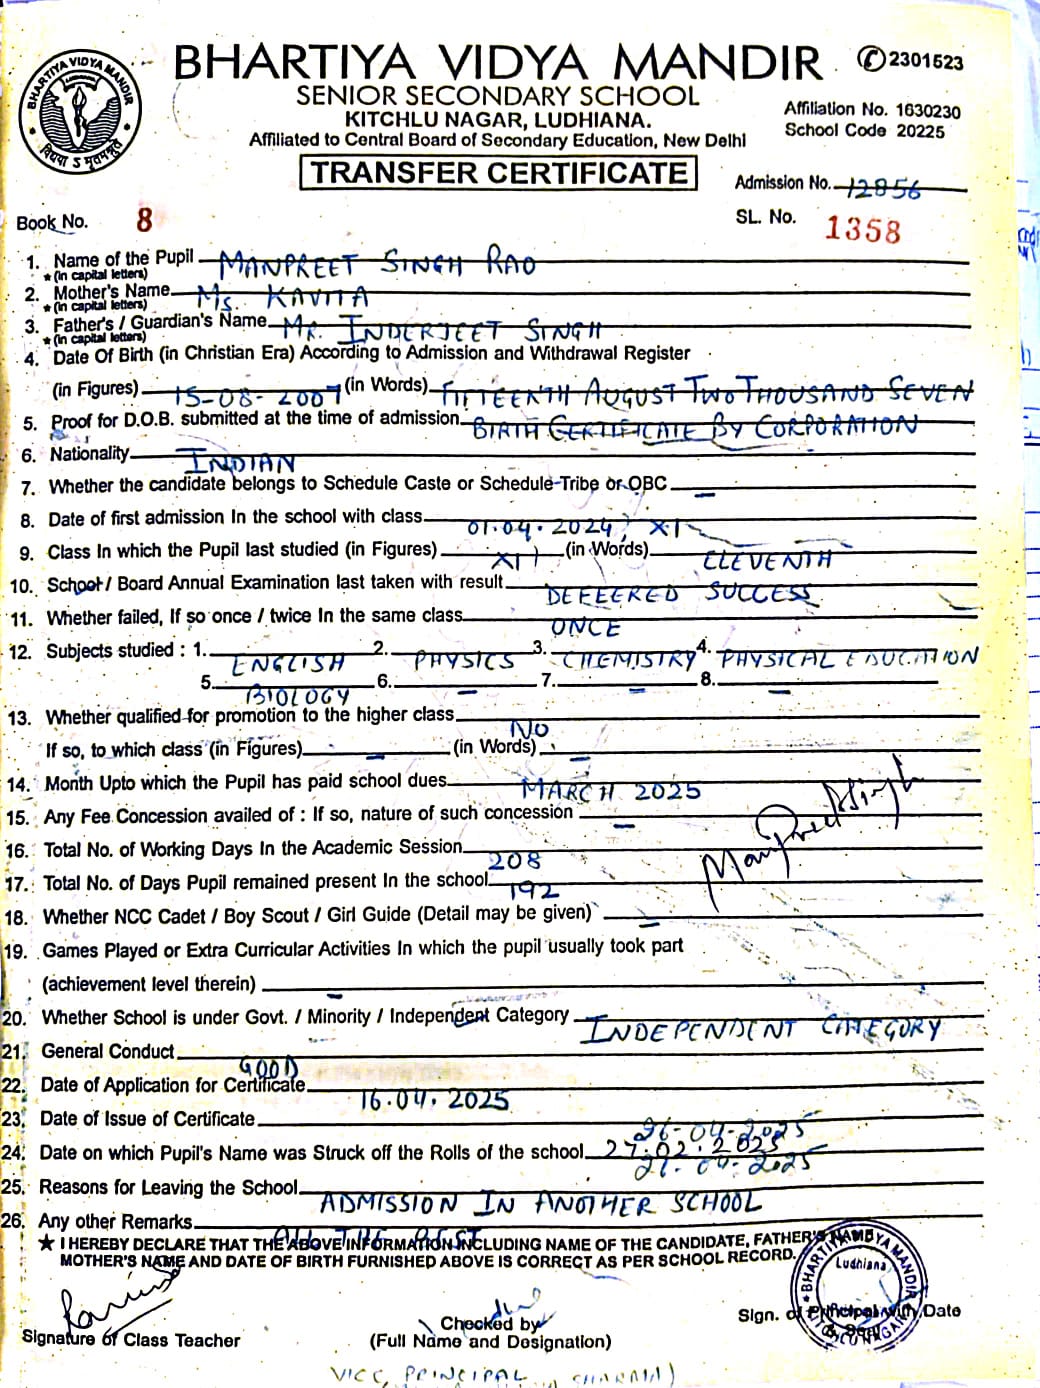 BHARTIYA VIDYA MANDIR ✆2301523
SENIOR SECONDARY SCHOOL
KITCHLU NAGAR, LUDHIANA.
Affiliation No. 1630230
School Code 20225
Affiliated to Central Board of Secondary Education, New Delhi
TRANSFER CERTIFICATE
Admission No. 12856
Book No. 8
SL. No. 1358
1. Name of the Pupil MANPREET SINGH RAO
★ (in capital letters)
2. Mother's Name Ms. KAVITA
★ (in capital letters)
3. Father's / Guardian's Name Mr. INDERJEET SINGH
★ (in capital letters)
4. Date Of Birth (in Christian Era) According to Admission and Withdrawal Register
(in Figures) 15-08-2007 (in Words) FIFTEENTH AUGUST TWO THOUSAND SEVEN
5. Proof for D.O.B. submitted at the time of admission. BIRTH CERTIFICATE BY CORPORATION
6. Nationality INDIAN
7. Whether the candidate belongs to Schedule Caste or Schedule Tribe or OBC —
8. Date of first admission In the school with class 01.04.2024, XI
9. Class In which the Pupil last studied (in Figures) XI (in Words) ELEVENTH
10. School / Board Annual Examination last taken with result DEFEERED SUCCESS
11. Whether failed, If so once / twice In the same class ONCE
12. Subjects studied : 1. ENGLISH 2. PHYSICS 3. CHEMISTRY 4. PHYSICAL EDUCATION
5. BIOLOGY 6. — 7. — 8. —
13. Whether qualified for promotion to the higher class NO
If so, to which class (in Figures) — (in Words) —
14. Month Upto which the Pupil has paid school dues MARCH 2025
15. Any Fee Concession availed of : If so, nature of such concession —
Manpreet Singh
16. Total No. of Working Days In the Academic Session 208
17. Total No. of Days Pupil remained present In the school 192
18. Whether NCC Cadet / Boy Scout / Girl Guide (Detail may be given) —
19. Games Played or Extra Curricular Activities In which the pupil usually took part
(achievement level therein) —
20. Whether School is under Govt. / Minority / Independent Category INDEPENDENT CATEGORY
21. General Conduct GOOD
22. Date of Application for Certificate 16.04.2025
23. Date of Issue of Certificate 26-04-2025
24. Date on which Pupil's Name was Struck off the Rolls of the school 27.02.2025
21.04.2025
25. Reasons for Leaving the School ADMISSION IN ANOTHER SCHOOL
26. Any other Remarks ALL THE BEST
★ I HEREBY DECLARE THAT THE ABOVE INFORMATION INCLUDING NAME OF THE CANDIDATE, FATHER'S NAME
MOTHER'S NAME AND DATE OF BIRTH FURNISHED ABOVE IS CORRECT AS PER SCHOOL RECORD.
BHARTIYA VIDYA MANDIR
Ludhiana
KITCHLU NAGAR
Signature of Class Teacher
Checked by
(Full Name and Designation)
Sign. of Principal with Date
& Seal
VICE PRINCIPAL SHARMA)